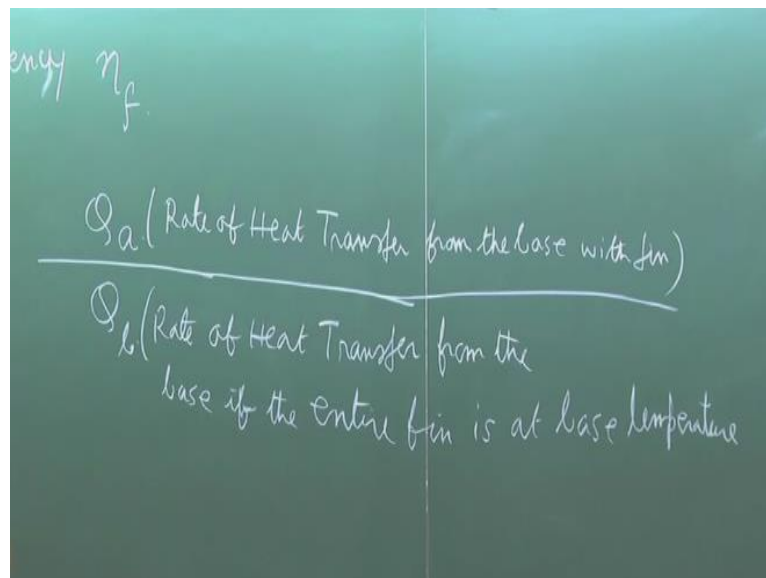 ency η_f.
Q_a. (Rate of Heat Transfer from the base with fin)
Q_b. (Rate of Heat Transfer from the
base if the entire fin is at base temperature